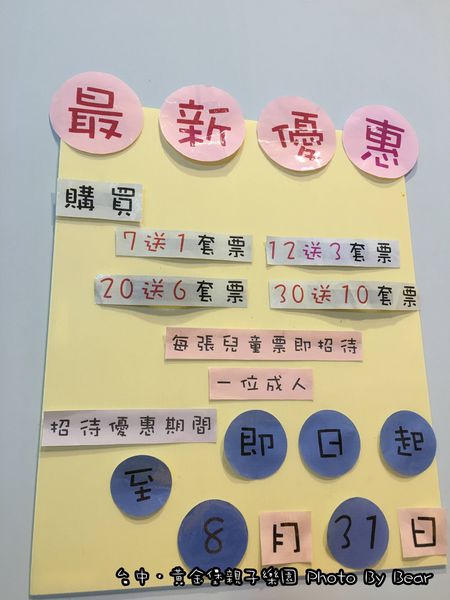 最新優惠
購買
7送1套票 12送3套票
20送6套票 30送10套票
每張兒童票即招待
一位成人
招待優惠期間 即日起
至
8月31日
台中·黃金堡親子樂園 Photo By Bear